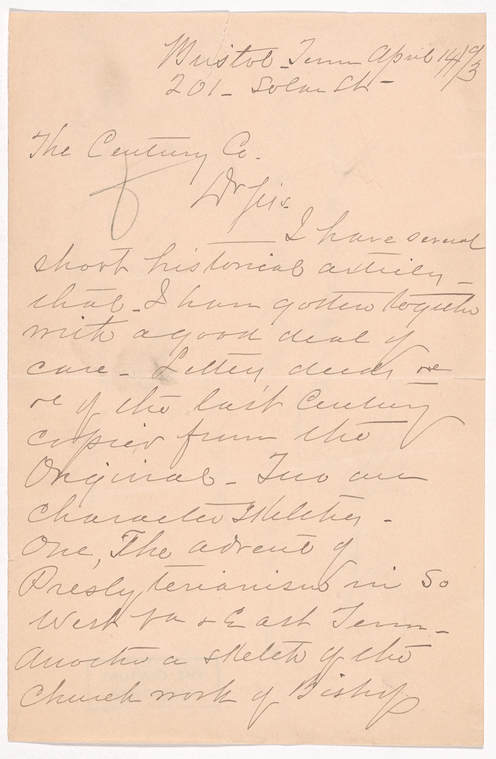 Bristol - Tenn April 14/93
201 - Solar St -
The Century Co.
Dr Sir.
I have several
short historical articles -
that - I have gotten together
with a good deal of
care - Letters deeds &c
&c of the last Century
copied from the
Original - Two are
Character Sketches -
One, The advent of
Presbyterianism in So
West Va & East Tenn -
Another a sketch of the
Church work of Bishop